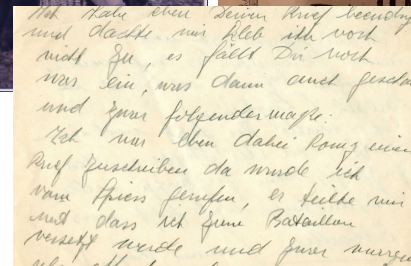 Ich habe eben Deinen Brief beendigt
und dachte mir kleb ihn noch
nicht zu, es fällt Dir noch
was ein, was dann auch gescha
und zwar folgendermaße:
Ich war eben dabei Romy einen
Brief zuschreiben da wurde ich
vom Spiess gerufen, er teilte mir
mit dass ich zum Bataillon
versetzt werde und zwar morgen